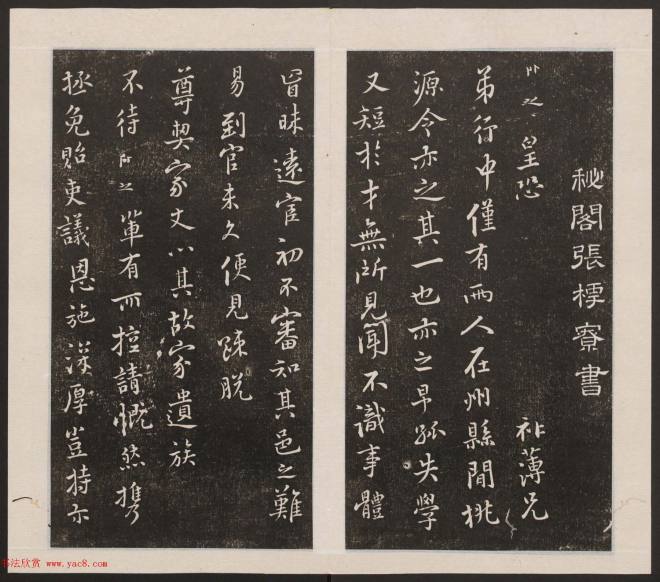 秘閣張樗寮書
即之皇恐 祚薄兄
弟行中僅有兩人在州縣間桃
源令亦之其一也亦之早孤失學
又短於才無所見聞不識事體
冒昧遠宦初不審知其邑之難
易到官未久便見踈脫
尊契家丈以其故家遺族
不待即之輩有所控請慨然攜
拯免貽吏議恩施深厚豈特亦
书法欣赏 www.yac8.com